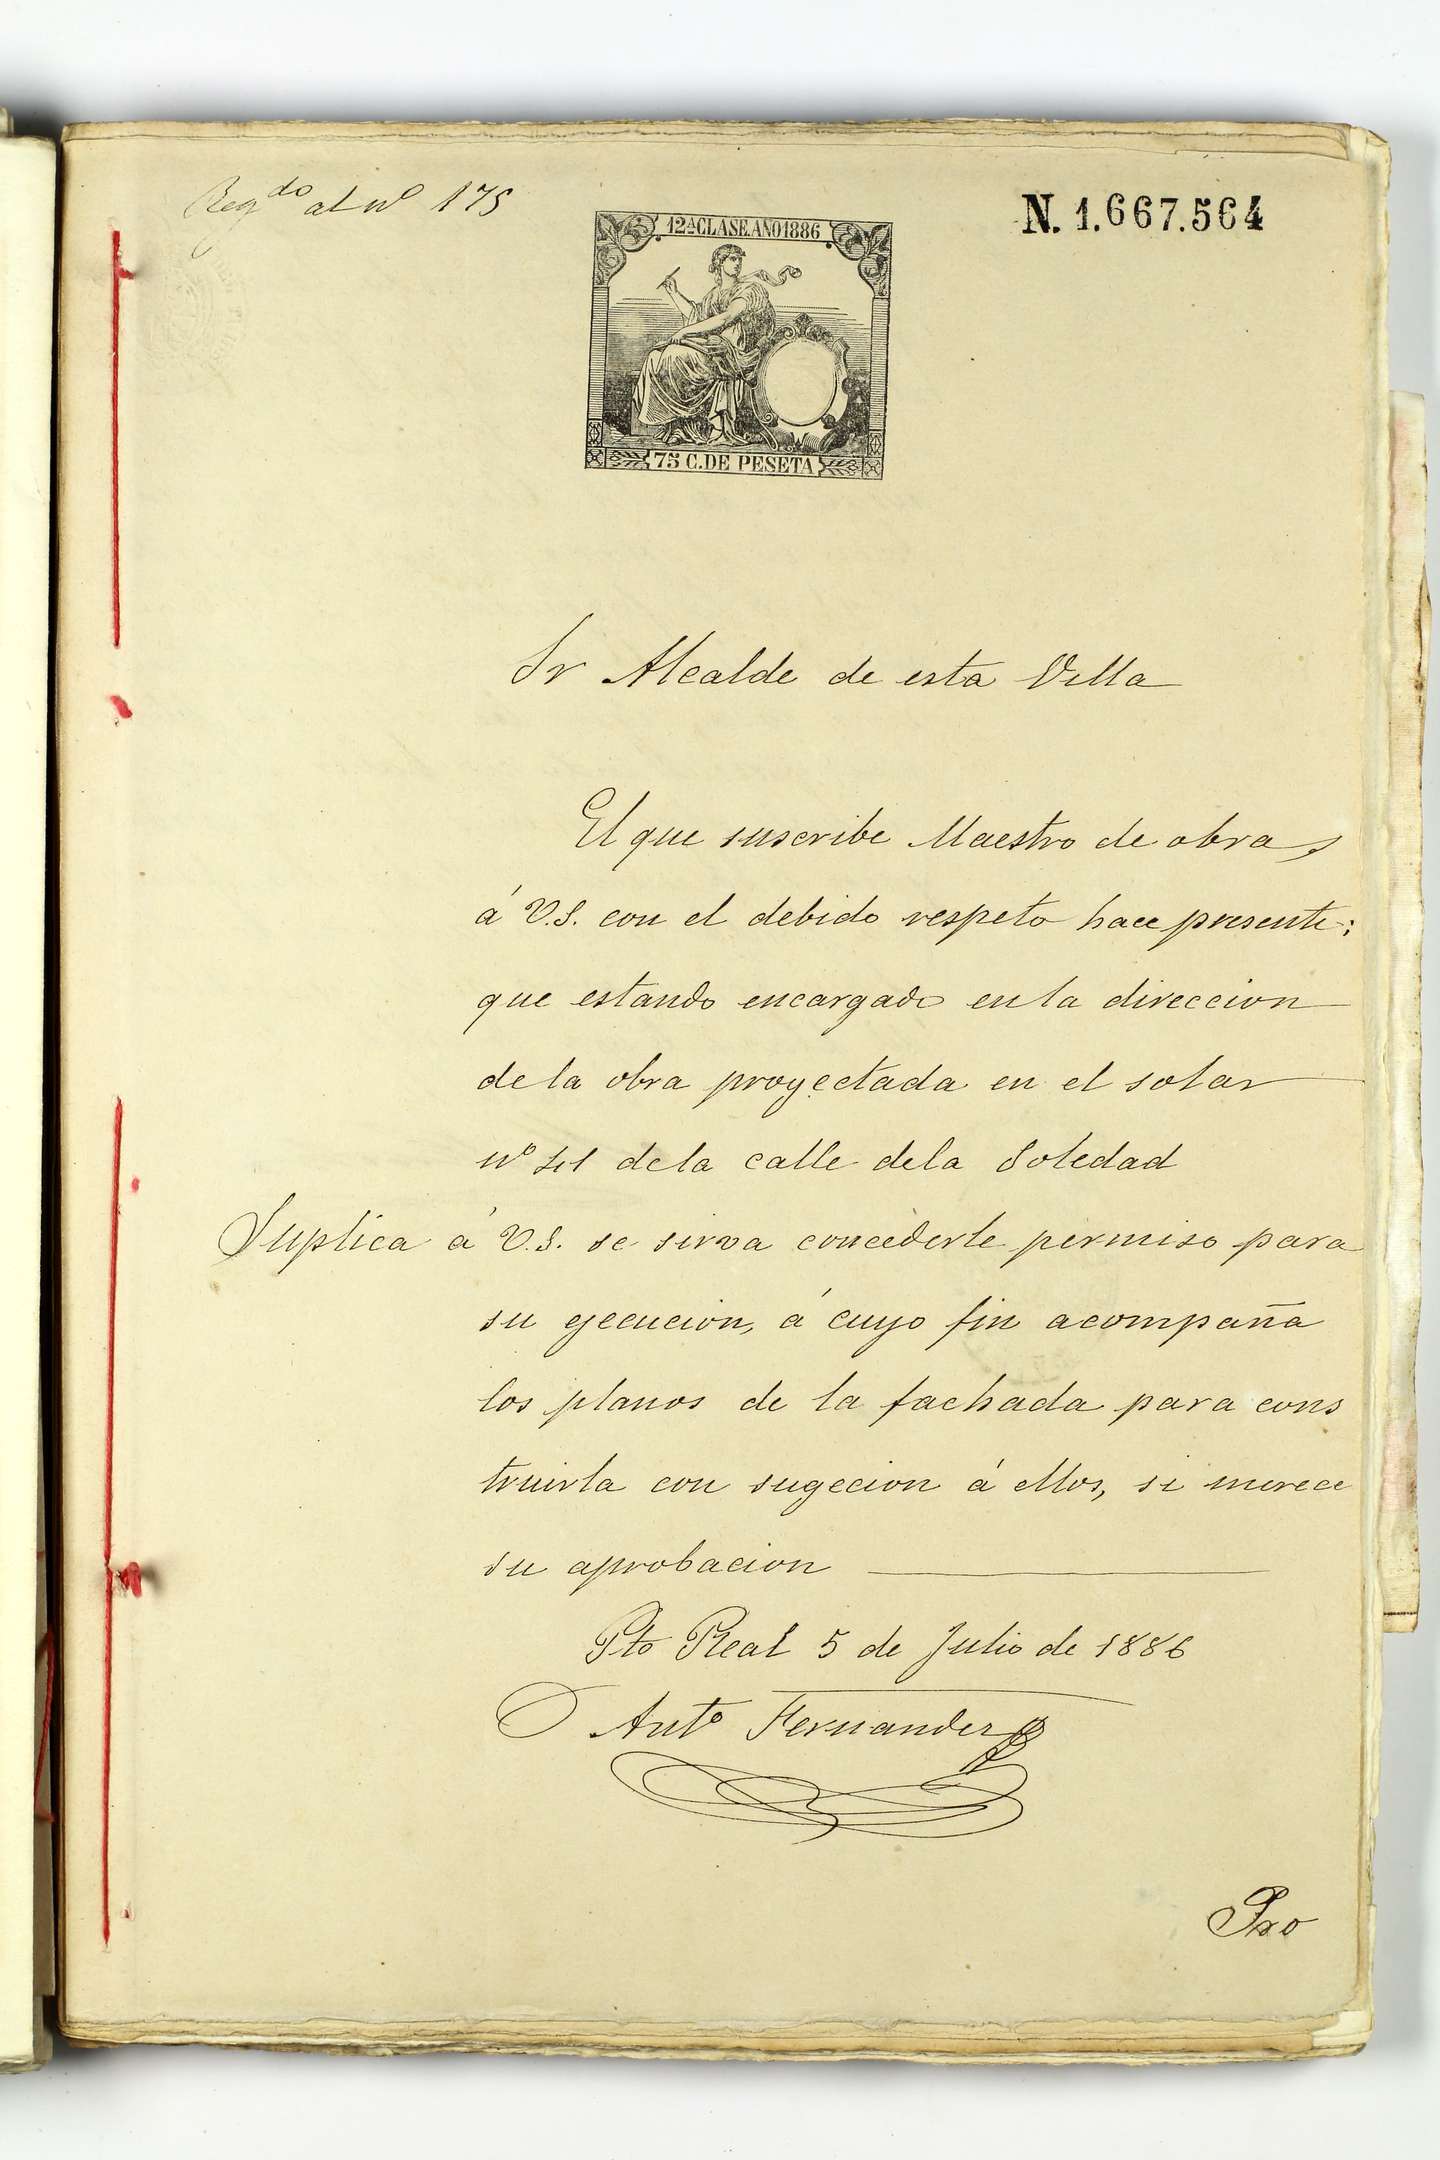 Regdo al nº 175
N. 1.667.564
12ª CLASE. AÑO 1886
75 C. DE PESETA
Sr Alcalde de esta Villa
El que suscribe Maestro de obras
á V.S. con el debido respeto hace presente:
que estando encargado en la direccion
de la obra proyectada en el solar
nº de la calle de la Soledad
Suplica á V.S. se sirva concederle permiso para
su ejecucion, á cuyo fin acompaña
los planos de la fachada para cons
truirla con sugecion á ellos, si merece
su aprobacion
Pto Real 5 de Julio de 1886
Antº Fernandez